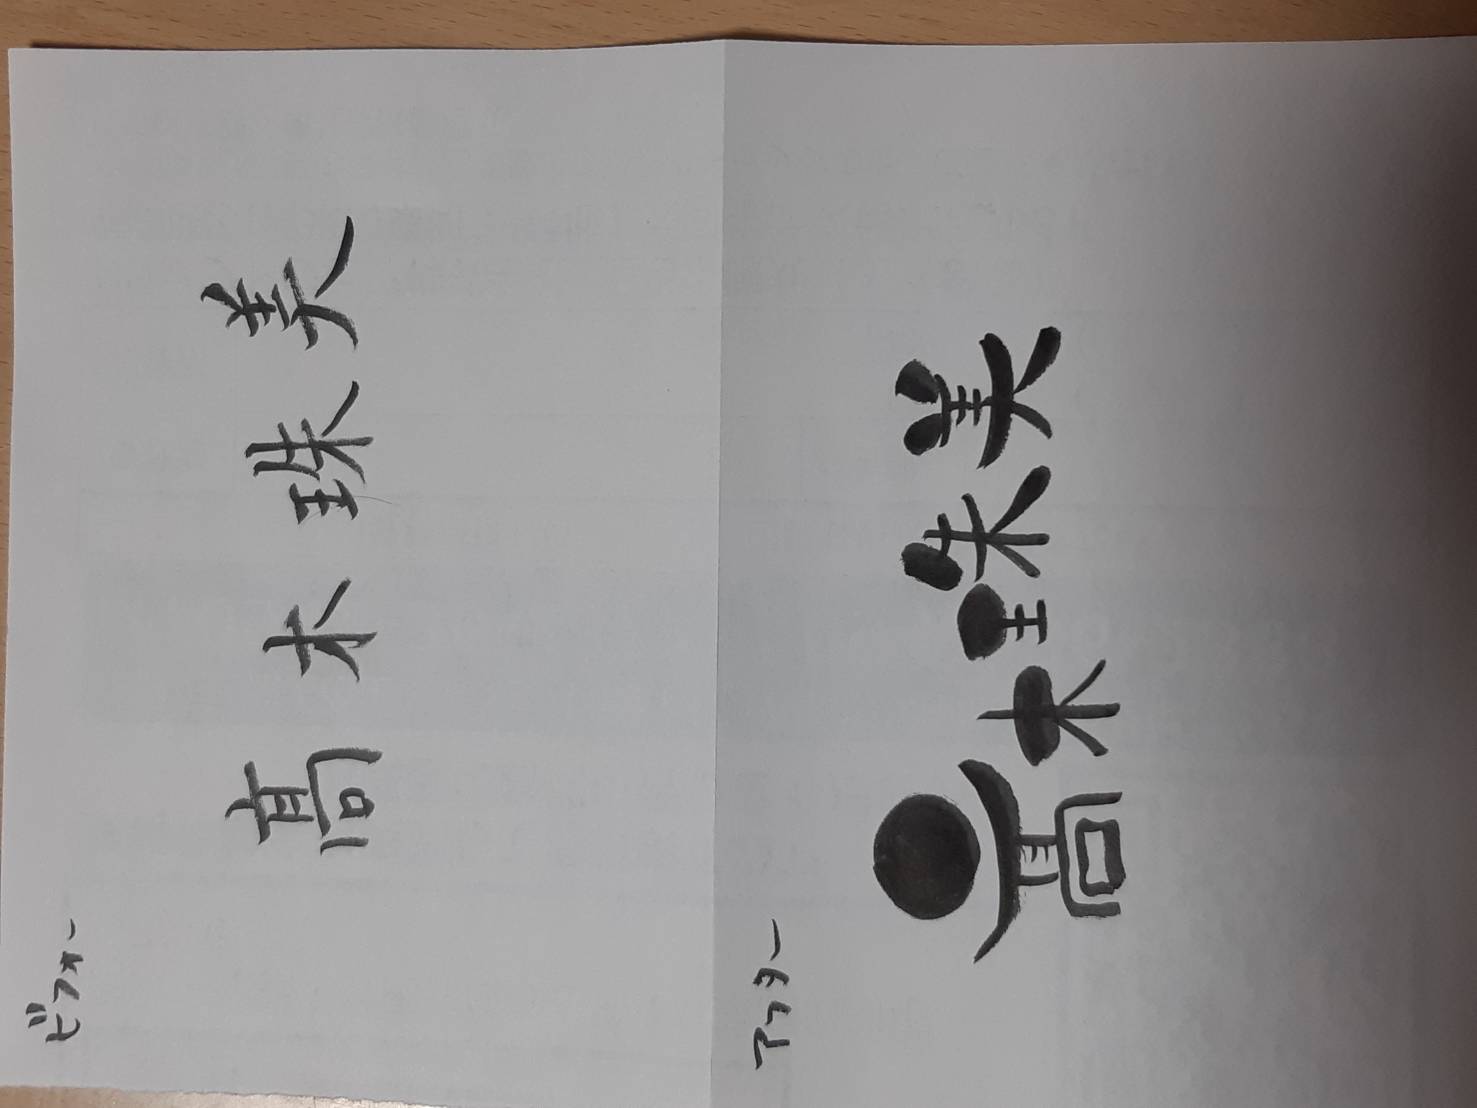 ビフォー
高木珠美
アフター
高木珠美